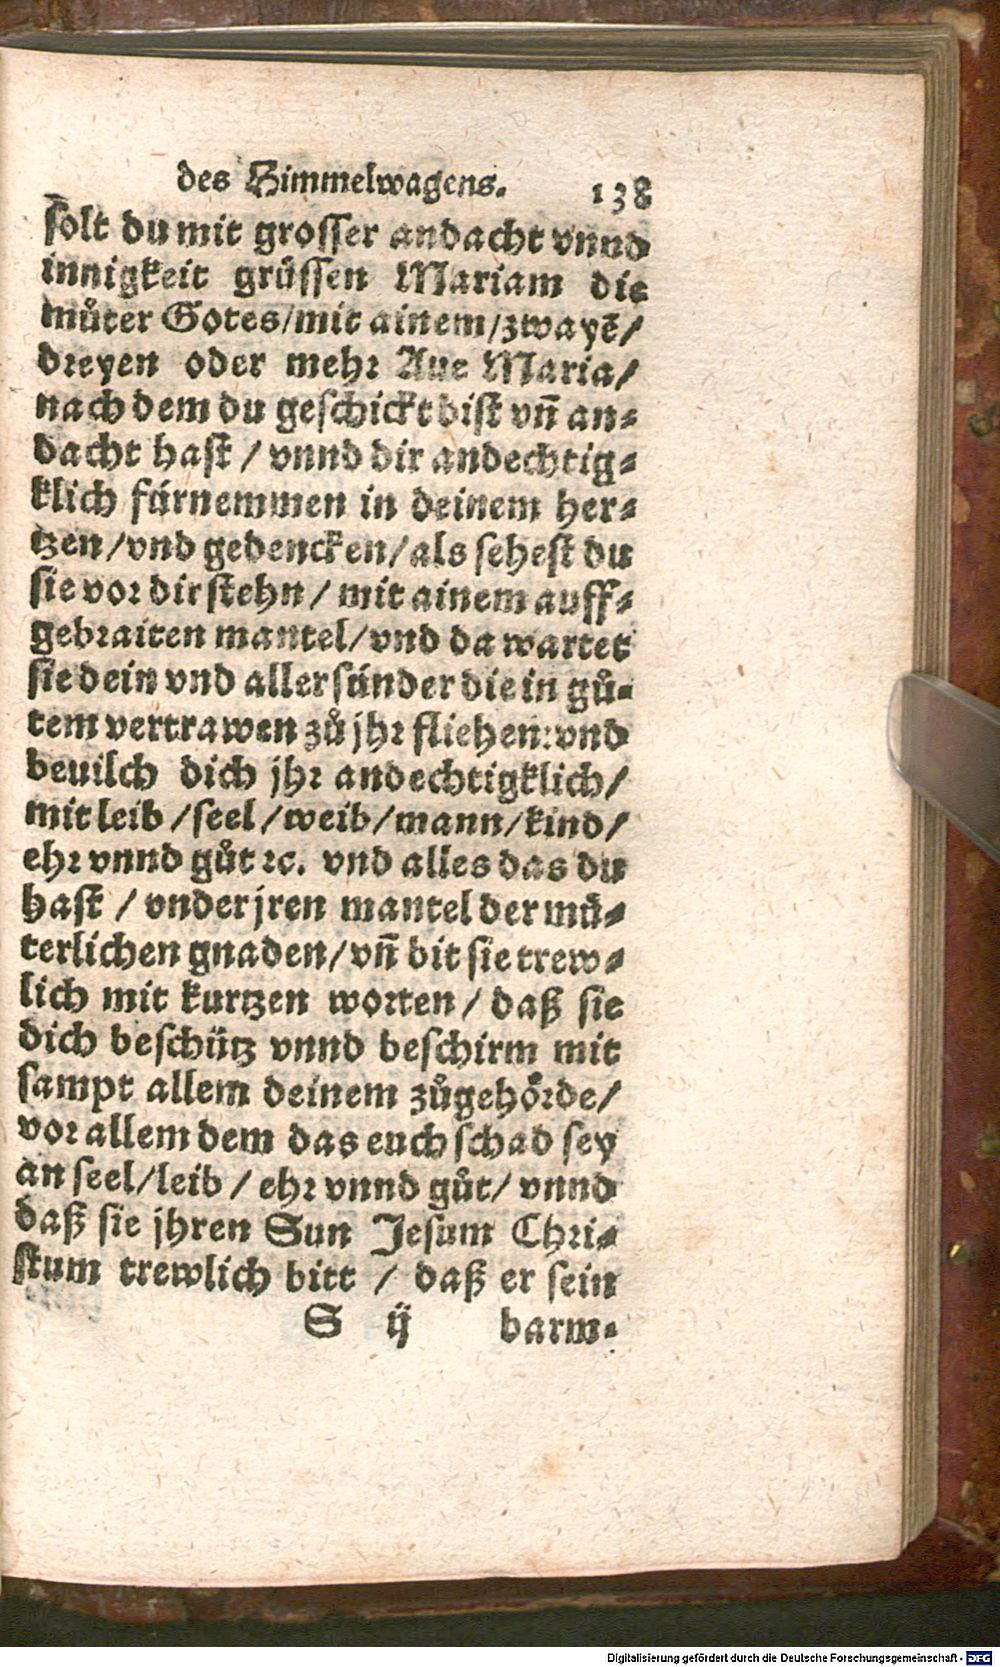 des Himmelwagens. 138
solt du mit grosser andacht vnnd
innigkeit grüssen Mariam die
můter Gotes/mit ainem/zwayẽ/
dreyen oder mehr Aue Maria/
nach dem du geschickt bist vñ an-
dacht hast / vnnd dir andechtig-
klich fürnemmen in deinem her-
tzen/vnd gedencken/als sehest du
sie vor dir stehn / mit ainem auff-
gebraiten mantel/vnd da wartet
sie dein vnd aller sünder die in gů-
tem vertrawen zů jhr fliehen: vnd
beuilch dich jhr andechtigklich/
mit leib /seel /weib/mann/kind/
ehr vnnd gůt ꝛc. vnd alles das du
hast / vnder jren mantel der mü-
terlichen gnaden/vñ bit sie trew-
lich mit kurtzen worten / daß sie
dich beschütz vnnd beschirm mit
sampt allem deinem zůgehörde/
vor allem dem das euch schad sey
an seel/leib / ehr vnnd gůt/ vnnd
daß sie jhren Sun Jesum Chri-
stum trewlich bitt / daß er sein
S ij barm-
Digitalisierung gefördert durch die Deutsche Forschungsgemeinschaft - DFG